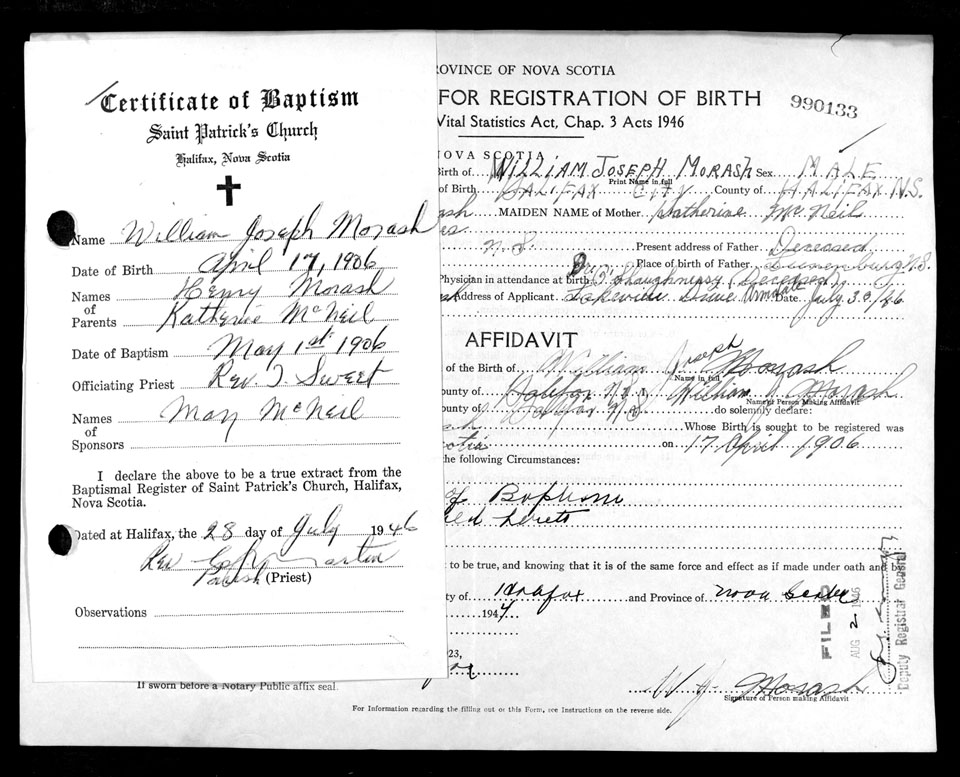 Certificate of Baptism
Saint Patrick's Church
Halifax, Nova Scotia
Name William Joseph Morash
Date of Birth April 17, 1906
Names Henry Morash
of
Parents Katherine McNeil
Date of Baptism May 1st. 1906
Officiating Priest Rev. J. Sweet
Names May McNeil
of
Sponsors
I declare the above to be a true extract from the
Baptismal Register of Saint Patrick's Church, Halifax,
Nova Scotia.
Dated at Halifax, the 28 day of July 1946
Rev Martin
Parish (Priest)
Observations
ROVINCE OF NOVA SCOTIA
FOR REGISTRATION OF BIRTH
990133
Vital Statistics Act, Chap. 3 Acts 1946
NOVA SCOTIA
Birth of WILLIAM JOSEPH MORASH Sex MALE
Print Name in full
of Birth HALIFAX CITY County of HALIFAX N.S.
ash MAIDEN NAME of Mother Katherine McNeil
es
N.S. Present address of Father Deceased
Place of birth of Father Lunenburg N.S.
Physician in attendance at birth Dr. O'Shaughnessy (Deceased)
Address of Applicant Lakeview Drive Armdale Date July 30/46
AFFIDAVIT
of the Birth of William Joseph Morash
Name in full
ounty of Halifax N.S. I, William J. Morash
Name of Person Making Affidavit
ounty of Halifax N.S. do solemnly declare:
ash Whose Birth is sought to be registered was
otia on 17 April 1906
the following Circumstances:
of Baptism
t to be true, and knowing that it is of the same force and effect as if made under oath and by
ty of Halifax and Province of Nova Scotia
194
23,
If sworn before a Notary Public affix seal.
W J Morash
Signature of Person making Affidavit
For Information regarding the filling out or this Form, see Instructions on the reverse side.
FILED
AUG 2 1946
Deputy Registrar General